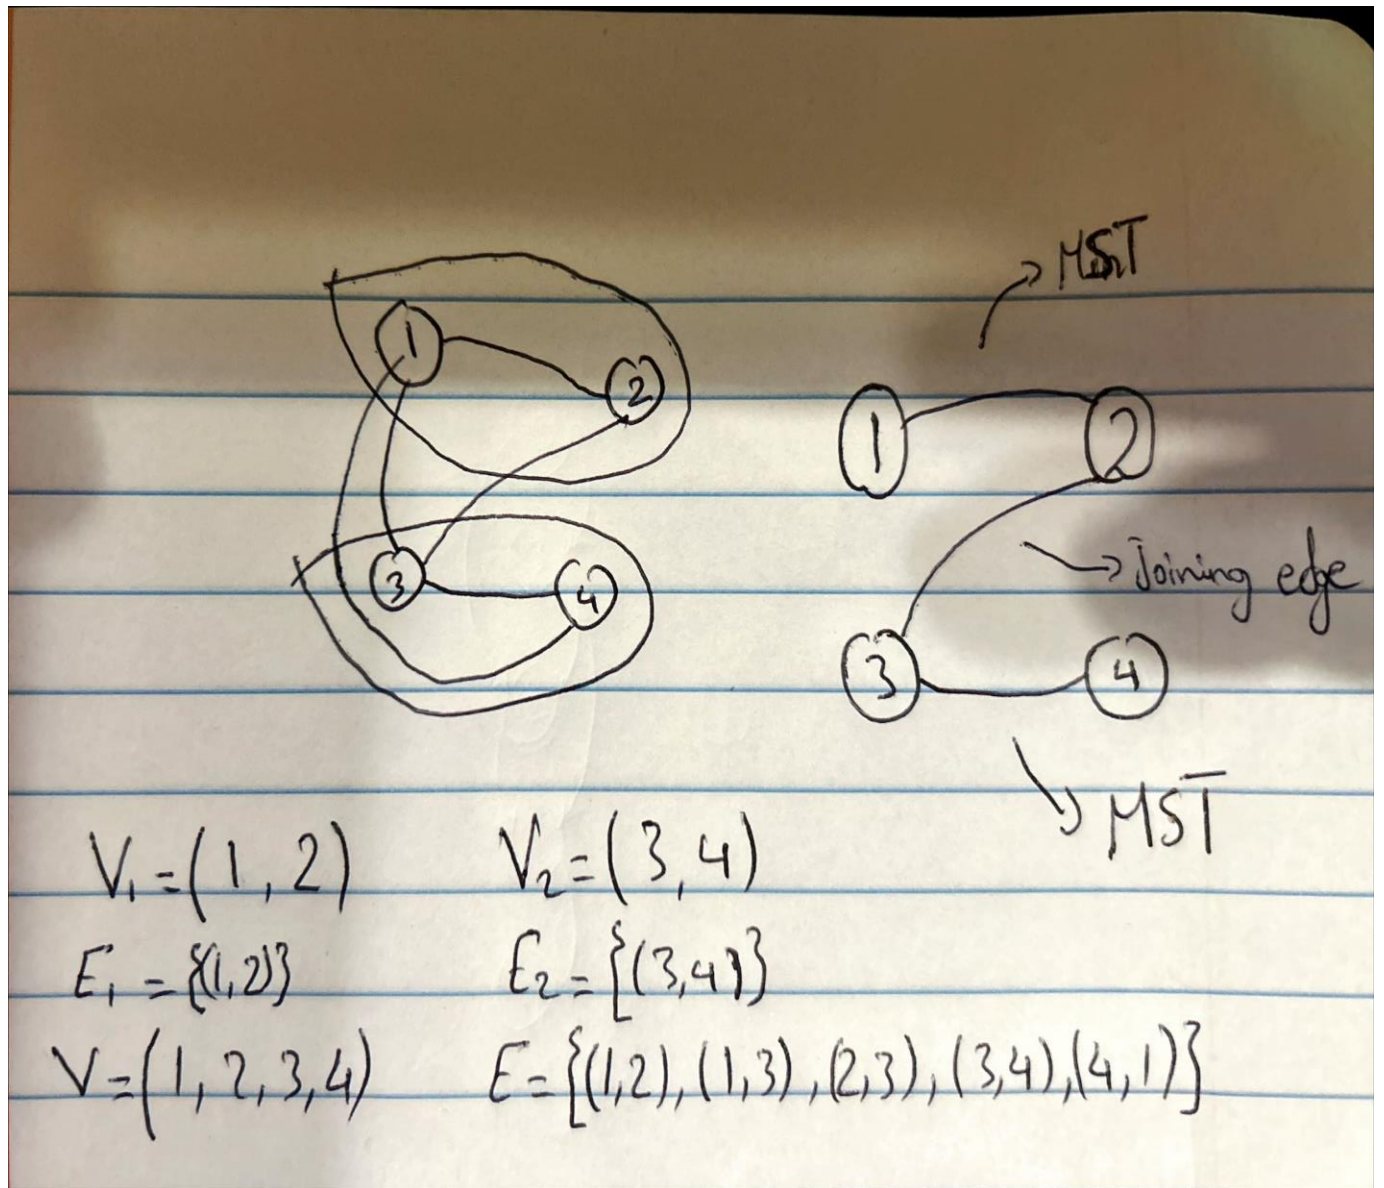 MST
1
2
1
2
Joining edge
3
4
3
4
MST
V₁=(1, 2)
V₂=(3, 4)
E₁={(1,2)}
E₂={(3,4)}
V=(1, 2, 3, 4)
E={(1,2), (1,3), (2,3), (3,4), (4,1)}